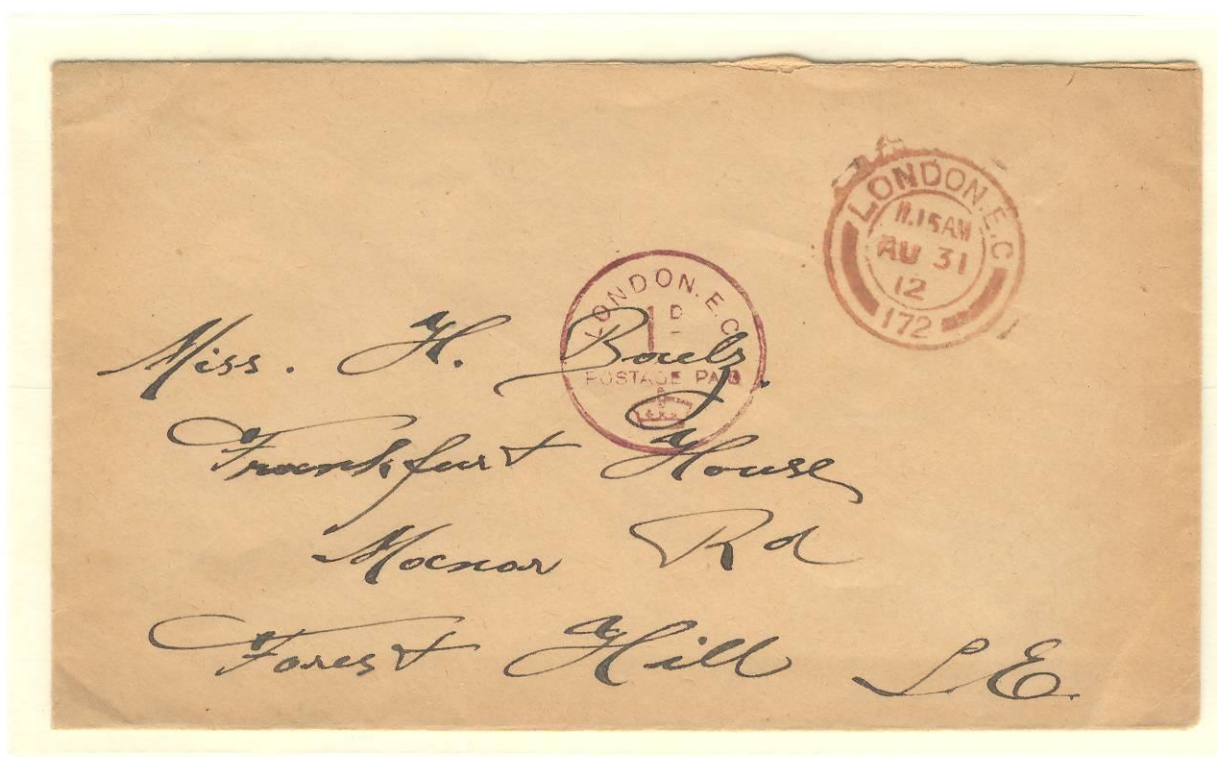 LONDON. E.C
11.15AM
AU 31
12
172
LONDON. E.C
1D
POSTAGE PAID
Miss. H.
Frankfurt House
Manor Rd
Forest Hill S.E.